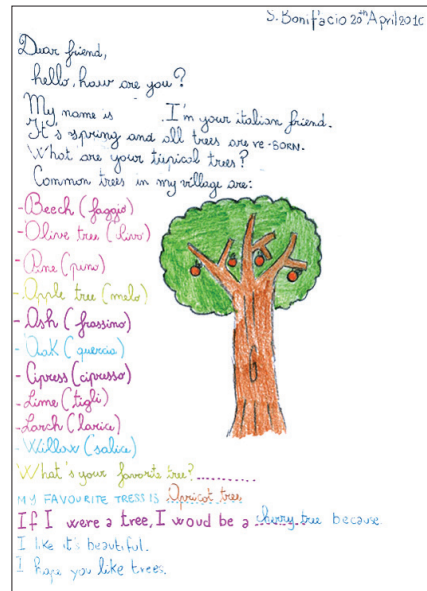 S. Bonifacio 20th April 2010
Dear friend,
hello, haur are you?
My name is . I'm your italian friend.
It's spring and all trees are re-born.
What are your tipical trees?
Common trees in my village are:
- Beech (faggio)
- Olive tree (ulivo)
- Pine (pino)
- Apple tree (melo)
- Ash (frassino)
- Oak (quercia)
- Cipress (cipresso)
- Lime (tigli)
- Larch (larice)
- Willow (salice)
What's your favorite tree?..........
MY FAVOURITE TRESS IS Apricot tree
If I were a tree, I woud be a cherry tree because
I like it's beautiful.
I hope you like trees.